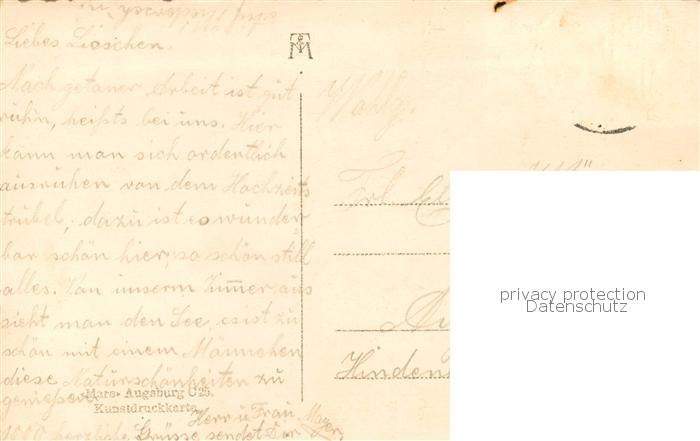 Liebes Lieschen.
Nach getaner Arbeit ist gut
ruhn, heißts bei uns. Hier
kann man sich ordentlich
ausruhen von dem Hochzeits
trubel, dazu ist es wunder
bar schön hier, so schön still
alles. Von unserm Zimmer aus
sieht man den See, es ist zu
schön mit einem Männchen
diese Naturschönheiten zu
geniessen.
1000 herzliche Grüsse sendet Dir
Herr u Frau Mayer.
Mars- Augsburg C 25.
Kunstdruckkarte
Wohlg.
Frl.
Hinden
privacy protection
Datenschutz